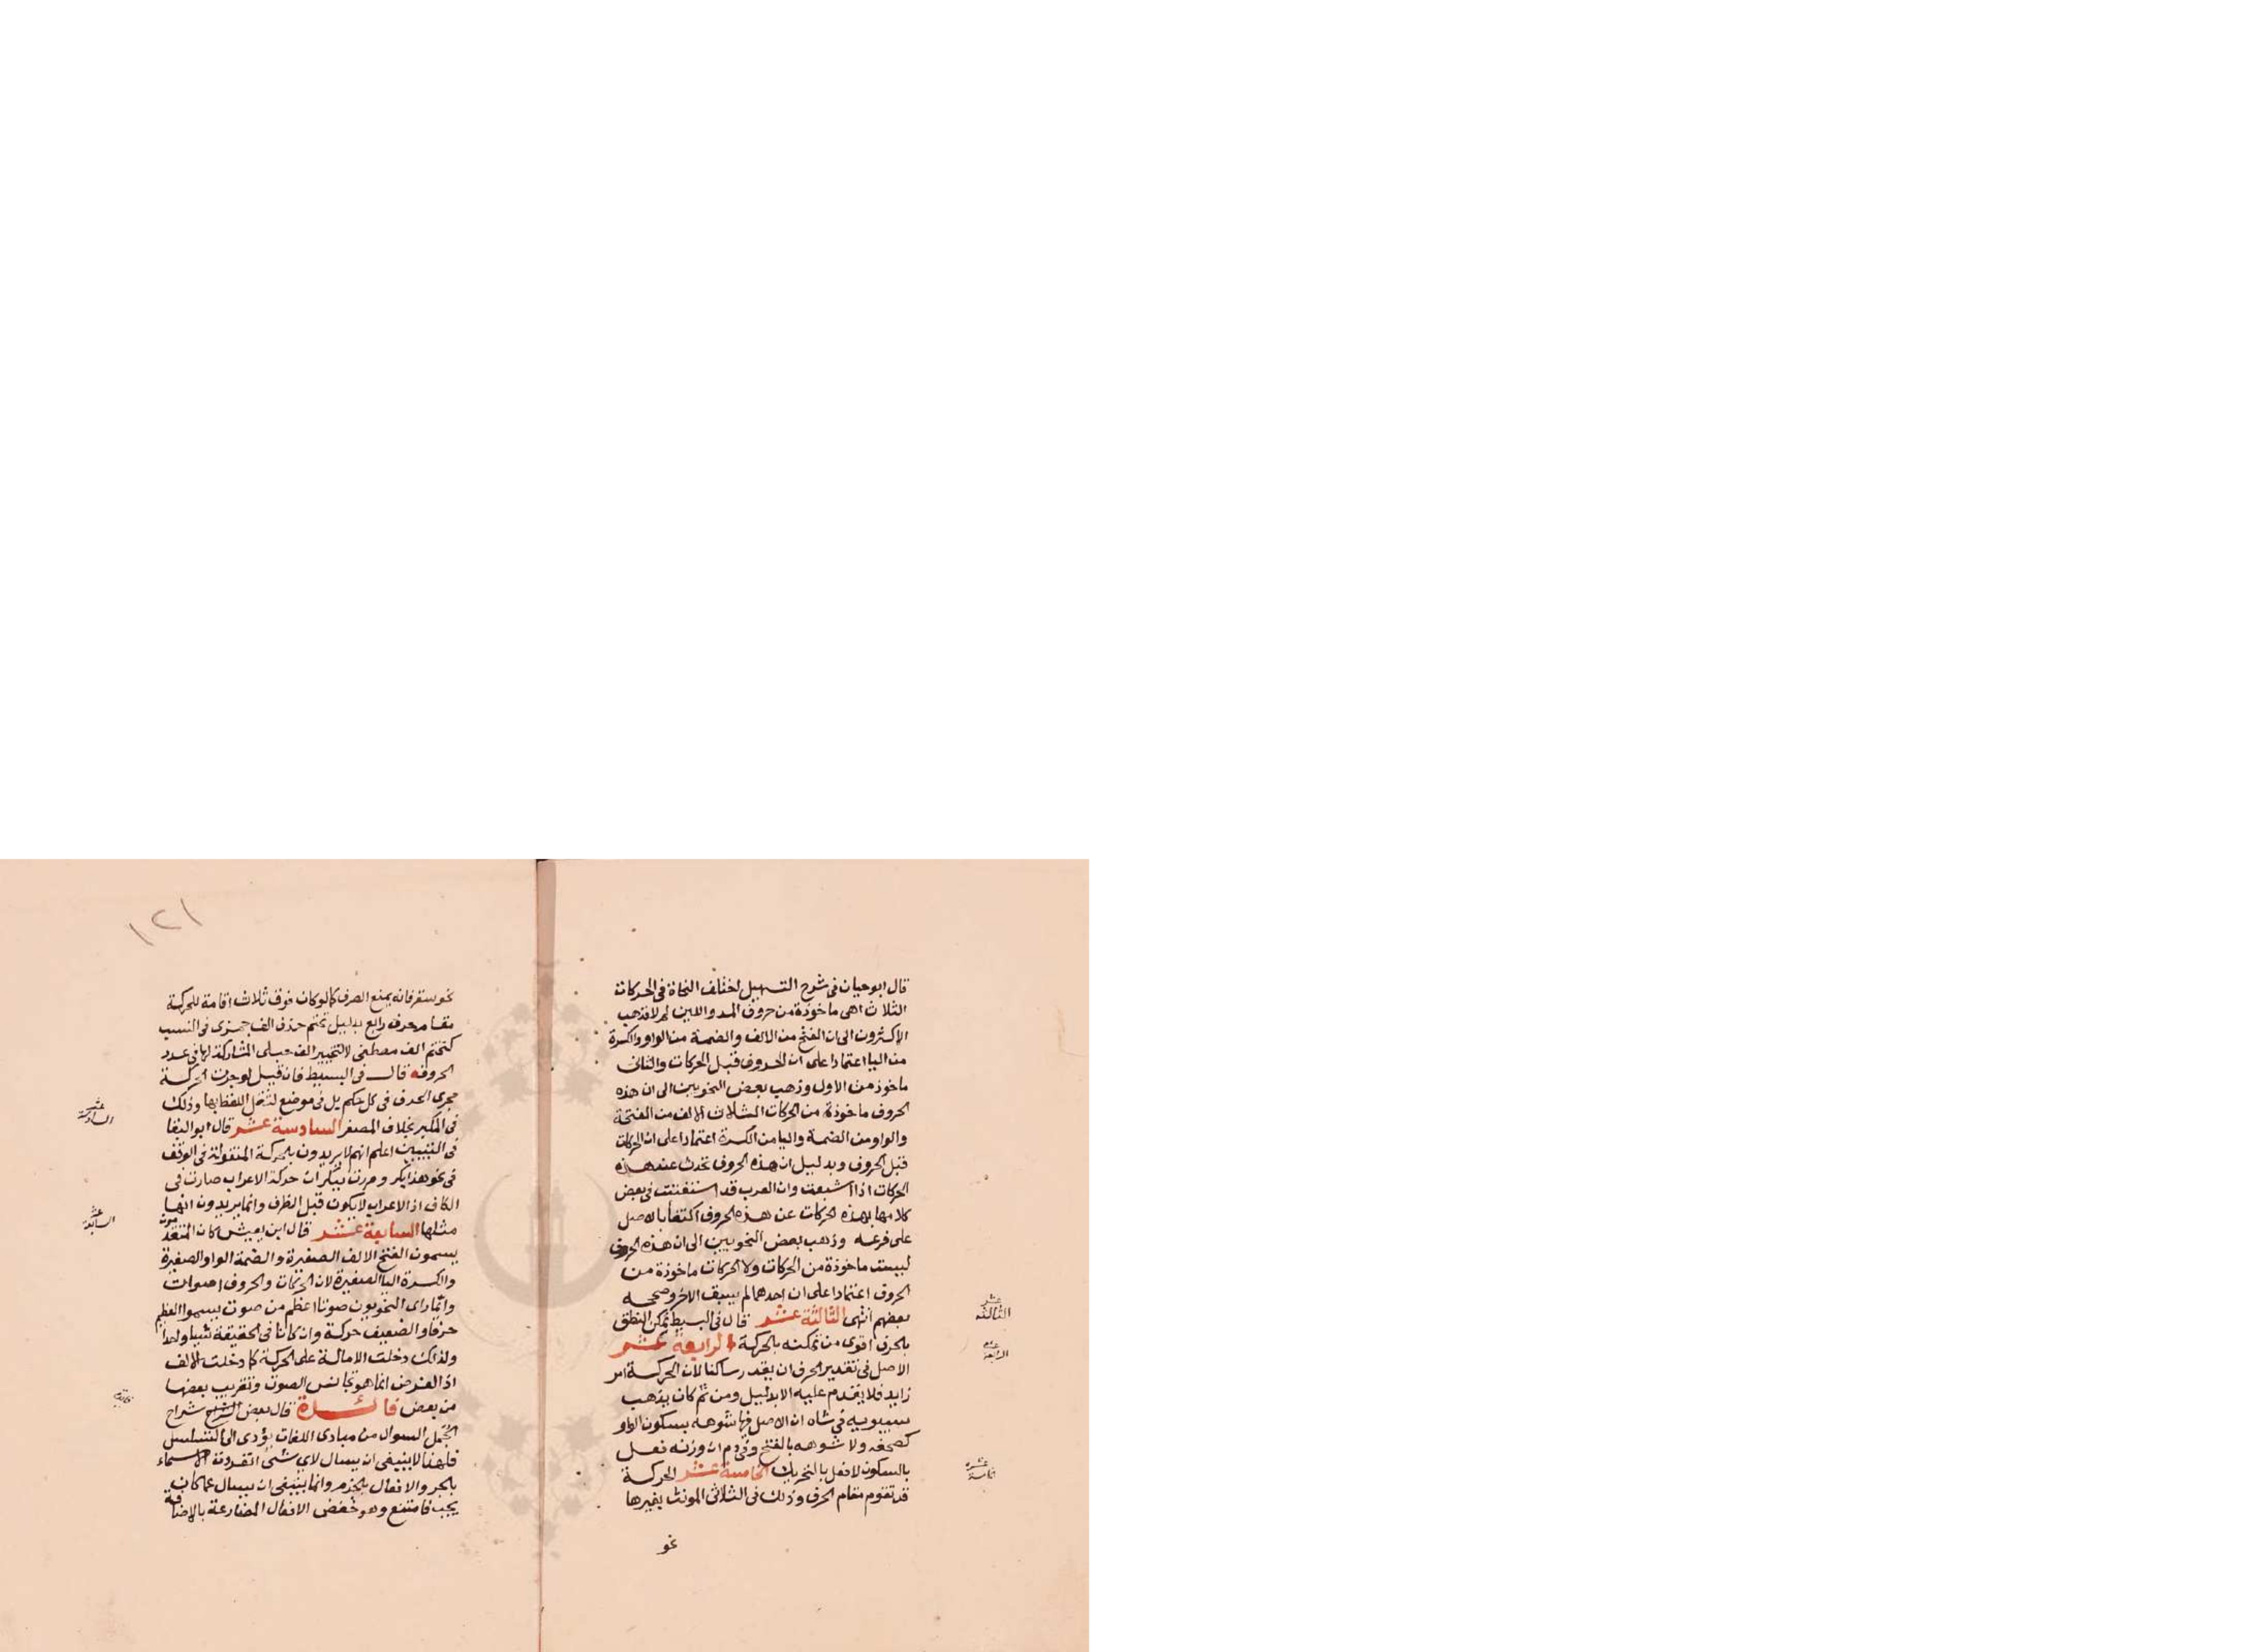 قال ابو حيان فى شرح التسهيل اختلف النحاة فى الحركات
الثلاث اهى ماخوذة من حروف المد واللين ام لا فذهب
الاكثرون الى ان الفتح من الالف والضمة من الواو والكسرة
من اليا اعتمادا على ان الحروف قبل الحركات والثانى
ماخوذ من الاول وذهب بعض النحويين الى ان هذه
الحروف ماخوذة من الحركات الثلاث الالف من الفتحة
والواو من الضمة واليا من الكسرة اعتمادا على ان الحركات
قبل الحروف وبدليل ان هذه الحروف تحدث عند هذه
الحركات اذا اشبعت وان العرب قد استغنت فى بعض
كلامها بهذه الحركات عن هذه الحروف اكتفا بالاصل
على فرعه وذهب بعض النحويين الى ان هذه الحروف
ليست ماخوذة من الحركات ولا الحركات ماخوذة من
الحروف اعتمادا على ان احدهما لم يسبق الاخر وصححه
بعضهم انتهى الثالثة عشر قال فى البسيط تمكن النطق
بالحرف اقوى من تمكنه بالحركة الرابعة عشر
الاصل فى تقدير الحرف ان يقدر ساكنا لان الحركة امر
زايد فلا يقدم عليه الا بدليل ومن ثم كان يذهب
سيبويه فى شاه ان الاصل فيها شوهه بسكون الواو
كصحفه ولا شوهه بالفتح وفى دم ان وزنه فعل
بالسكون لا فعل بالتحريك الخامسة عشر الحركة
قد تقوم مقام الحرف وذلك فى الثلاثى المونث بغيرها
نحو
عشر
الثالثة
عشر
الرابعة
عشره
خامسة
١٢١
نحو سقر فانه يمنع الصرف كما لو كان فوق ثلاث اقامة للحركة
مقام حرف رابع بدليل تحتم حذف الف جمزى فى النسب
كتحتم الف مصطفى لا لتخيير الف حبلى المشاركة لها فى عدد
الحروف قال فى البسيط فان قيل لو جرت الحركة
مجرى الحرف فى كل حكم بل فى موضع لثقل اللفظ بها وذلك
فى المكبر بخلاف المصغر السادسة عشر قال ابو البقا
فى التبيين اعلم انهم لا يريدون بالحركة المنقولة فى الوقف
فى نحو هذا بكر ومررت ببكر ان حركة الاعراب صارت فى
الكاف اذ الاعراب لا يكون قبل الطرف وانما يريدون انها
مثلها السابعة عشر قال ابن يعيش كان المتقدمون
يسمون الفتح الالف الصغيرة والضمة الواو الصغيرة
والكسرة اليا الصغيرة لان الحركات والحروف اصوات
وانما راى النحويون صوتا اعظم من صوت يسموا العظيم
حرفا والضعيف حركة وان كانا فى الحقيقة شيا واحدا
ولذلك دخلت الامالة على الحركة كما دخلت الالف
اذ الغرض انما هو تجانس الصوت وتقريب بعضها
من بعض فائدة قال بعض شراح
الجمل السوال من مبادى اللغات يؤدى الى التسلسل
فلهذا لا ينبغى ان يسال لاى شئ انفردت الاسماء
بالجر والافعال بالجزم وانما ينبغى ان يسال عما كان
يجب فامتنع وهو خفض الافعال المضارعة بالاضافة
عشر
السادسة
عشر
السابعة